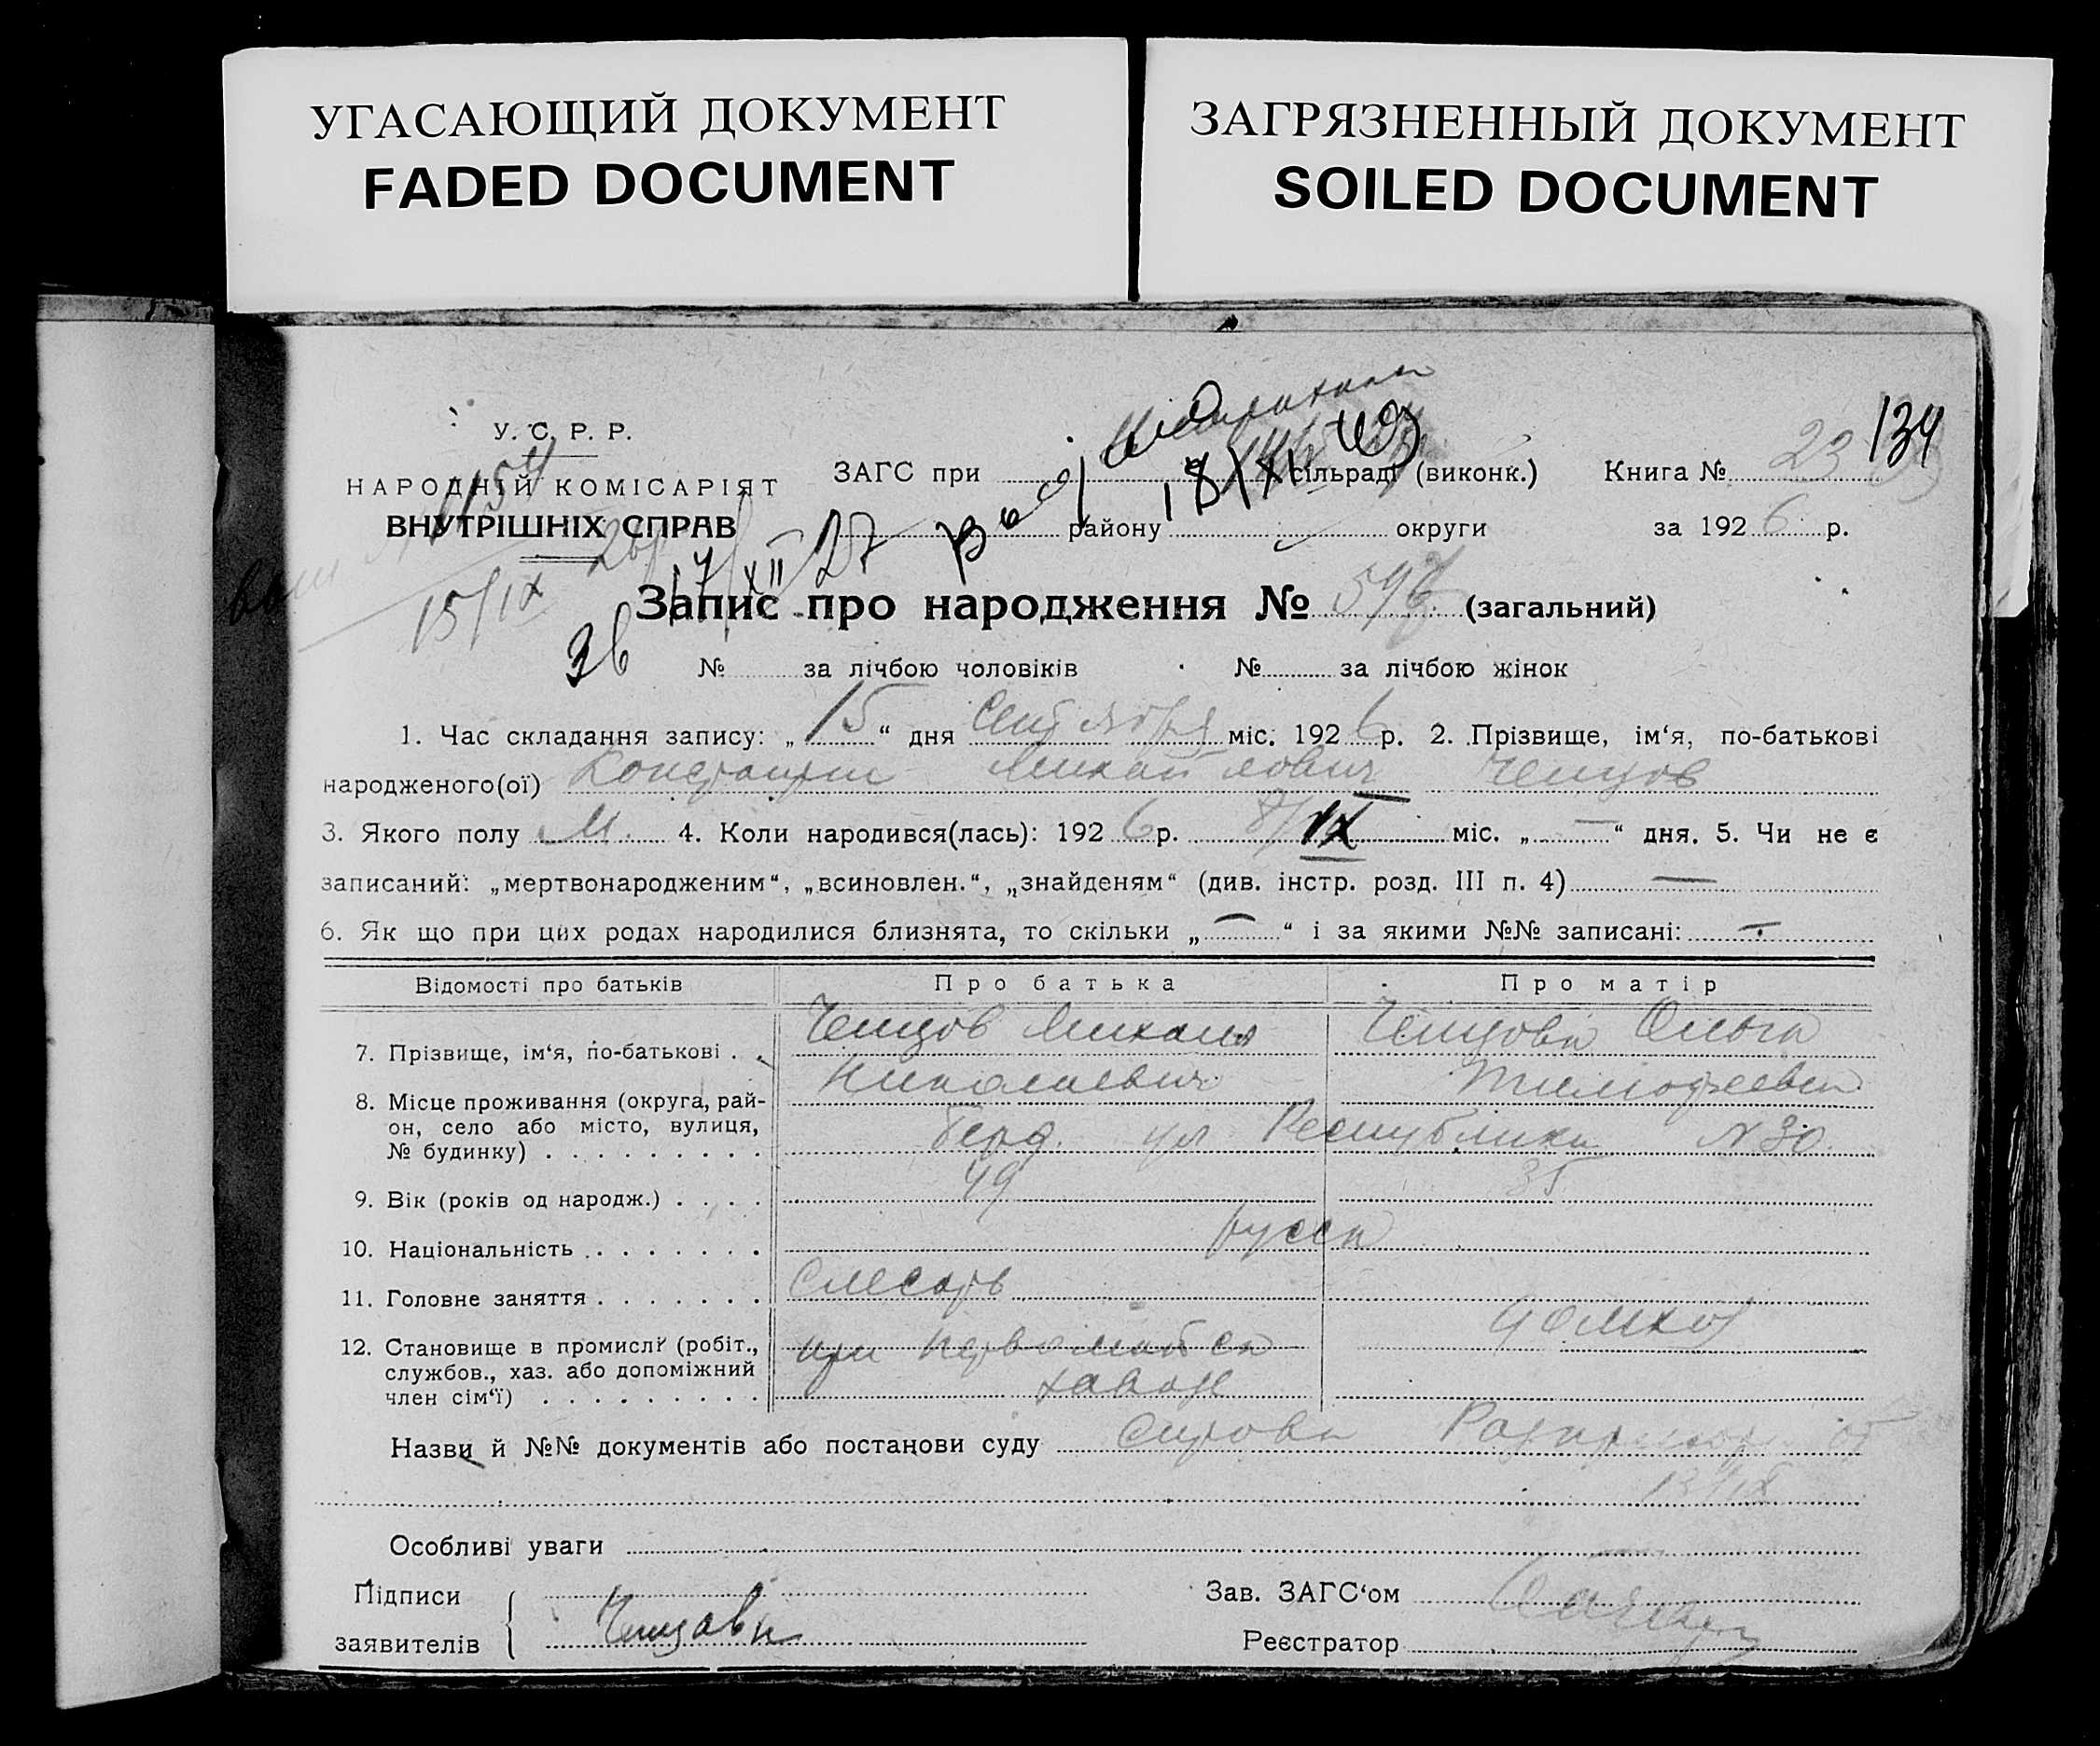 УГАСАЮЩИЙ ДОКУМЕНТ
FADED DOCUMENT
ЗАГРЯЗНЕННЫЙ ДОКУМЕНТ
SOILED DOCUMENT
134
У. С. Р. Р.
НАРОДНІЙ КОМІСАРІЯТ
ВНУТРІШНІХ СПРАВ
ЗАГС при сільраді (виконк.) Книга № 23
району округи за 1926 р.
18/XI
17/XII 27
15/IX
Запис про народження № 596 (загальний)
№ за лічбою чоловіків № за лічбою жінок
1. Час складання запису: „15“ дня Сентября міс. 1926 р. 2. Прізвище, ім‘я, по-батькові
народженого(ої) Константин Михайлович Ченцов
3. Якого полу М. 4. Коли народився(лась): 1926 р. 8/IX міс. „—“ дня. 5. Чи не є
записаний: „мертвонародженим“, „всиновлен.“, „знайденям“ (див. інстр. розд. III п. 4) —
6. Як що при цих родах народилися близнята, то скільки „—“ і за якими №№ записані: —
Відомості про батьків Про батька Про матір
7. Прізвище, ім‘я, по-батькові Ченцов Михаил Николаевич Ченцова Ольга Тимофеевн
8. Місце проживання (округа, рай-
он, село або місто, вулиця,
№ будинку) Берд. ул Республики N 30.
9. Вік (років од народж.) 49 35
10. Національність русск
11. Головне заняття Слесарь
12. Становище в промислі (робіт.,
службов., хаз. або допоміжний
член сім‘ї) при Первомайск заводе домхоз
Назви й №№ документів або постанови суду
13/IX
Особливі уваги
Підписи
заявителів Ченцова
Зав. ЗАГС‘ом
Реєстратор